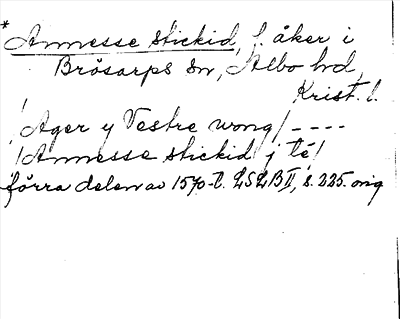 * Annesse stickid, f. åker i
Brösarps sn, Albo hd,
Krist. l.
/Ager y Vestre wong/ ----
/Annesse stickid j té/
förra delen av 1570-t. LSLB II, s. 225. orig